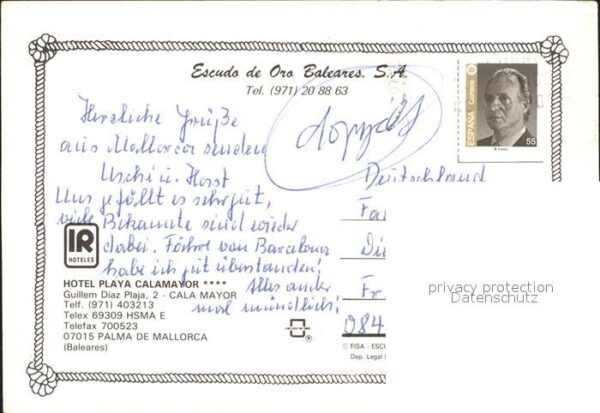 Escudo de Oro Baleares, S.A.
Tel. (971) 20 88 63
ESPAÑA Correos
55
Herzliche Grüße
aus Mallorca senden
Uschi u. Horst
Uns gefällt es sehr gut,
viele Bekannte sind wieder
dabei. Fähre von Barcelona
habe ich gut überstanden!
Alles andere
mal mündlich!
Deutschland
Fa
Di
Fr
084
IR
HOTELES
HOTEL PLAYA CALAMAYOR ****
Guillem Díaz Plaja, 2 - CALA MAYOR
Telf. (971) 403213
Telex 69309 HSMA E
Telefax 700523
07015 PALMA DE MALLORCA
(Baleares)
© FISA - ESCU
Dep. Legal
privacy protection
Datenschutz